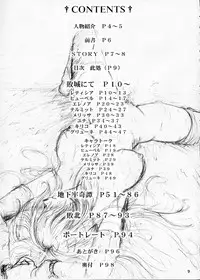 † CONTENTS †
人物紹介 P4～5
前書 P6
STORY P7～8
目次 此処 (P9)
敗城にて P10～
レティシア P10～13
ヒューベル P14～17
エレノア P20～23
チルミット P24～27
メリッサ P30～33
ユナ P34～37
キリコ P40～43
グリューネ P44～47
キャラトーク
レティシア P18
ヒューベル P19
エレノア P28
チルミット P29
メリッサ P38
ユナ P39
キリコ P48
グリューネ P49
地下牢奇譚 P51～86
敗北 P87～93
ポートレート P94
あとがき P96
奥付 P98
9